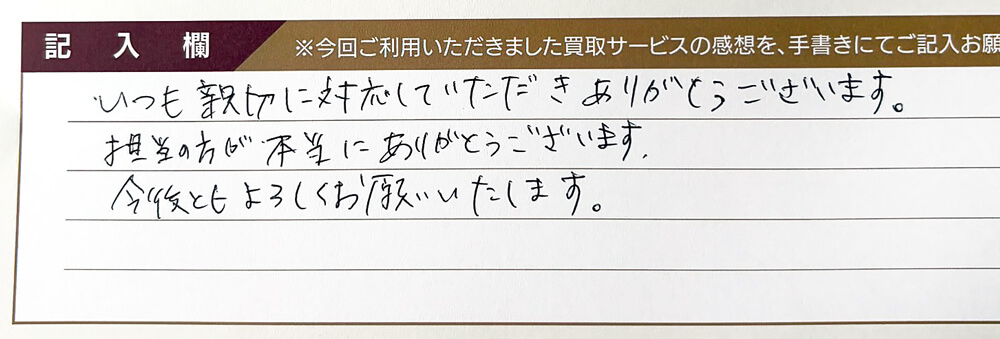 記入欄
※今回ご利用いただきました買取サービスの感想を、手書きにてご記入お願
いつも親切に対応していただきありがとうございます。
担当の方が本当にありがとうございます.
今後ともよろしくお願いいたします。